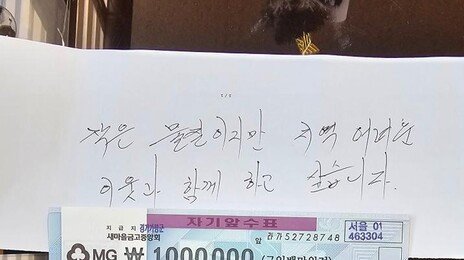 작은 물건이지만 지역 어려운
이웃과 함께 하고 싶습니다.
자기앞수표
지급지
새마을금고중앙회
앞 라가52728748
서울 01
463304
MG ₩ 1000000